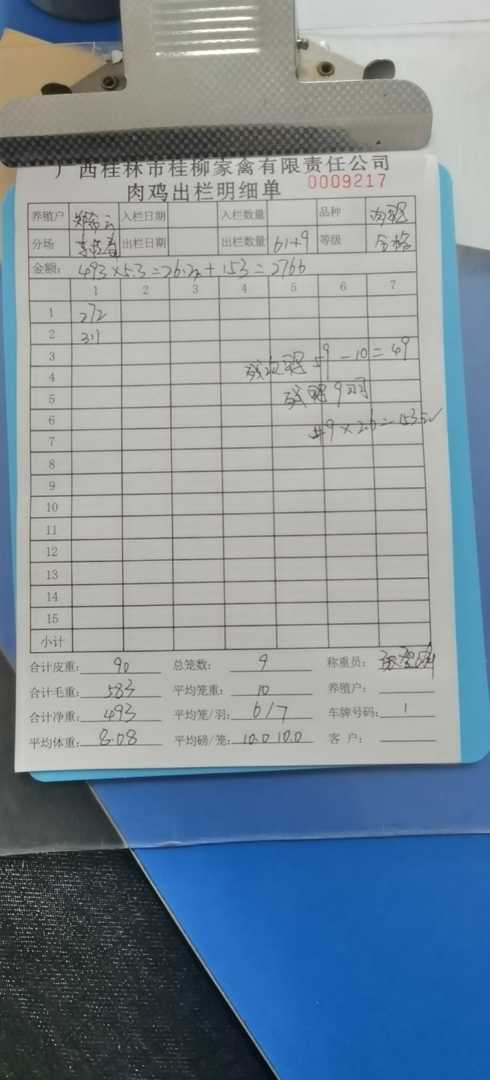 广西桂林市桂柳家禽有限责任公司
肉鸡出栏明细单 0009217
养殖户 入栏日期 入栏数量 品种
分场 出栏日期 出栏数量 61+9 等级 合格
金额: 493×5.3=2612+153=2766
1 2 3 4 5 6 7
1 272
2 311
3
4 59-10=49
5 9羽
6
7
8
9
10
11
12
13
14
15
小计
合计皮重: 90 总笼数: 9 称重员:
合计毛重: 583 平均笼重: 10 养殖户:
合计净重: 493 平均笼/羽: 6/7 车牌号码: 1
平均体重: 8.08 平均磅/笼: 10.0 10.0 客户: